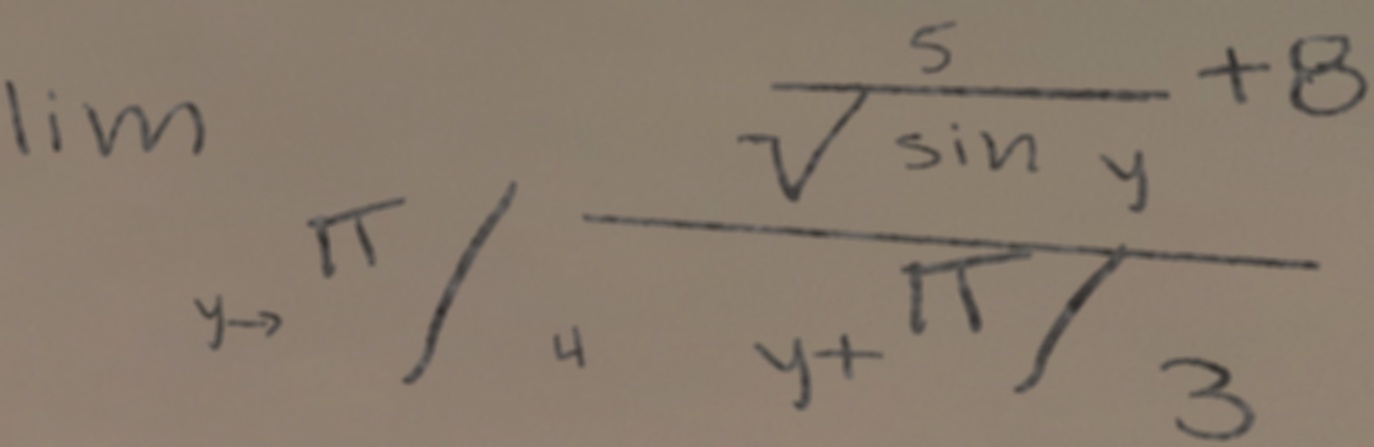 lim y→π/4 (5/√sin y + 8)/(y+π/3)